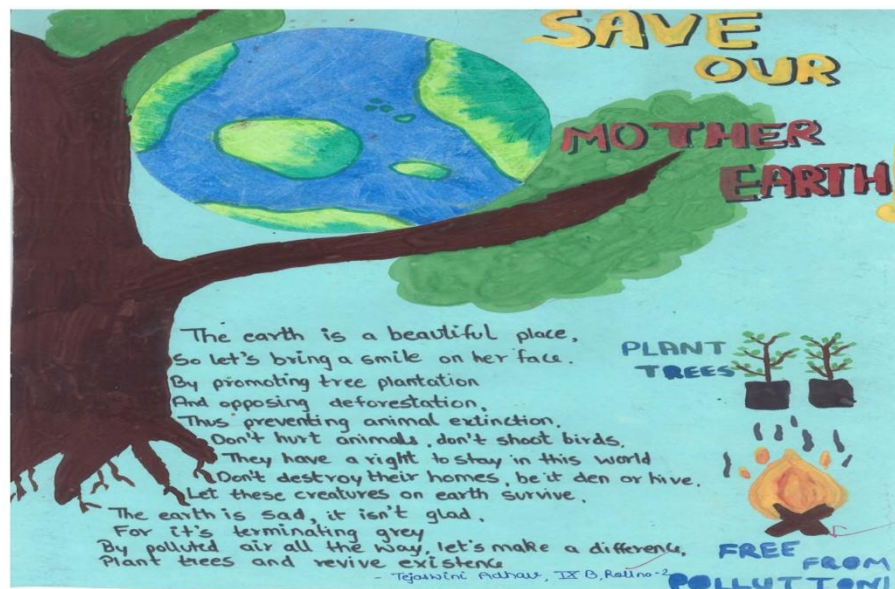 SAVE
OUR
MOTHER
EARTH!
The earth is a beautiful place,
So let's bring a smile on her face.
By promoting tree plantation
And opposing deforestation,
Thus preventing animal extinction.
Don't hurt animals, don't shoot birds.
They have a right to stay in this world
Don't destroy their homes, be it den or hive.
Let these creatures on earth survive.
The earth is sad, it isn't glad,
For it's terminating grey
By polluted air all the way, let's make a difference,
Plant trees and revive existence
- Tejaswini Adhav, IX B, Rollno-2
PLANT
TREES
FREE FROM
POLLUTTON!